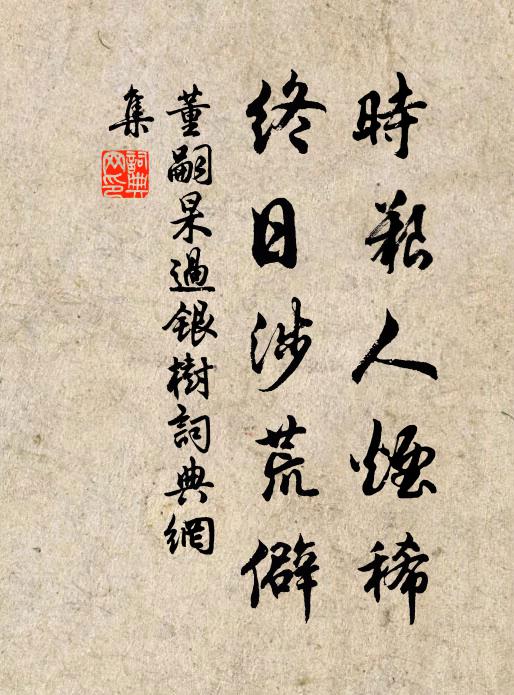 時艱人煙稀
終日涉荒僻
董嗣杲過銀樹詞典網
集
詞典
网印